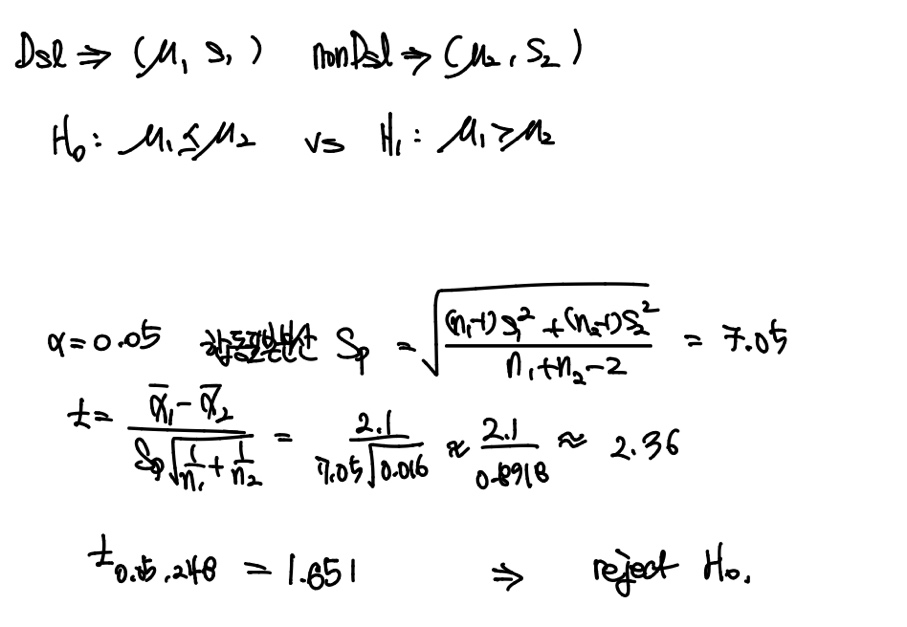 Dsl ⇒ (μ₁ s₁) nonDsl → (μ₂, S₂)
H₀: μ₁ ≤ μ₂ vs H₁: μ₁ > μ₂
α = 0.05 합동표본분산 Sp = √(((n₁-1)s₁² + (n₂-1)S₂²)/(n₁+n₂-2)) = 7.05
t = (x̄₁ - x̄₂)/(Sp√(1/n₁ + 1/n₂)) = 2.1/(7.05√0.016) ≈ 2.1/0.8918 ≈ 2.36
t₀.₀₅,₂₄₈ = 1.651 ⇒ reject H₀.